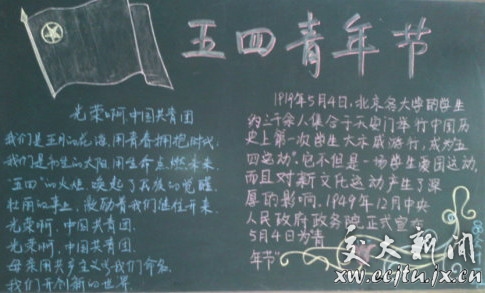 五四青年节
光荣啊,中国共青团
我们是五月的花海,用青春拥抱时代,
我们是初生的太阳,用生命点燃未来.
"五四"的火炬,唤起了民族的觉醒.
壮丽的事业,激励着我们继往开来.
光荣啊,中国共青团.
光荣啊,中国共青团.
母亲用共产主义为我们命名,
我们开创新的世界.
1919年5月4日,北京各大学的学生
约三千余人集合于天安门举行中国历
史上第一次学生大示威游行,成为五
四运动".它不但是一场学生爱国运动,
而且对新文化运动产生了深
厚的影响.1949年12月中央
人民政府政务院正式宣布
5月4日为青
年节"
交大新闻
xw.ecjtu.jx.cn